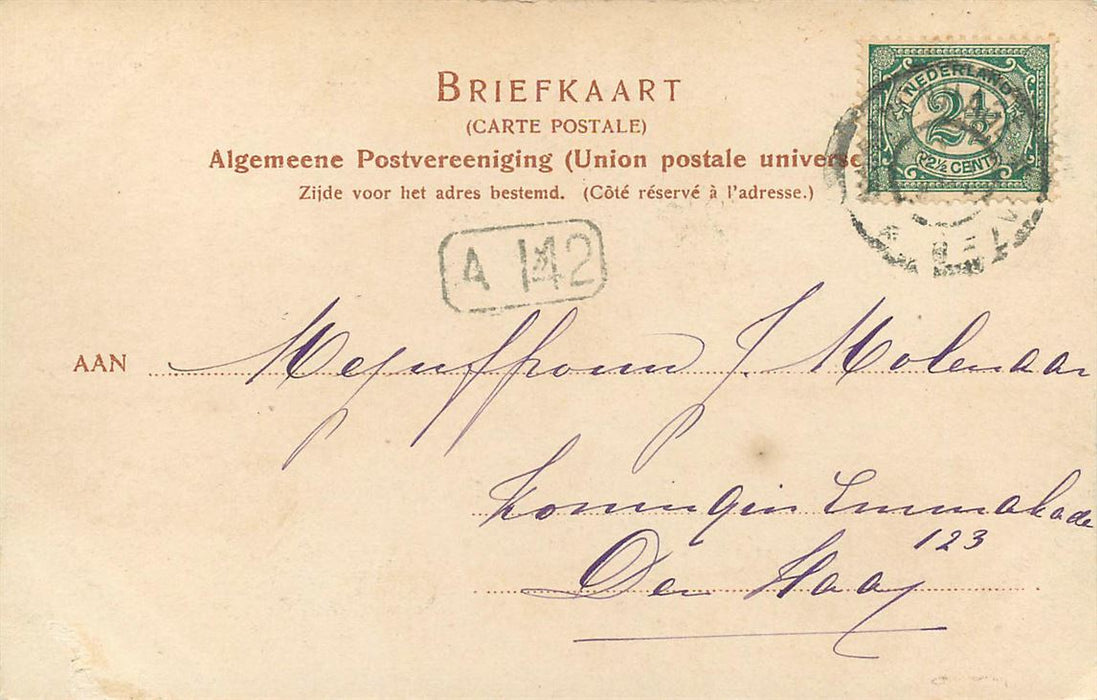 BRIEFKAART
(CARTE POSTALE)
Algemeene Postvereeniging (Union postale univers
Zijde voor het adres bestemd. (Côté réservé à l'adresse.)
NEDERLAND
2½
(2½ CENT)
A 142
AAN Mejuffrouw J. Molenaar
Koningin Emmakade
123
Den Haag